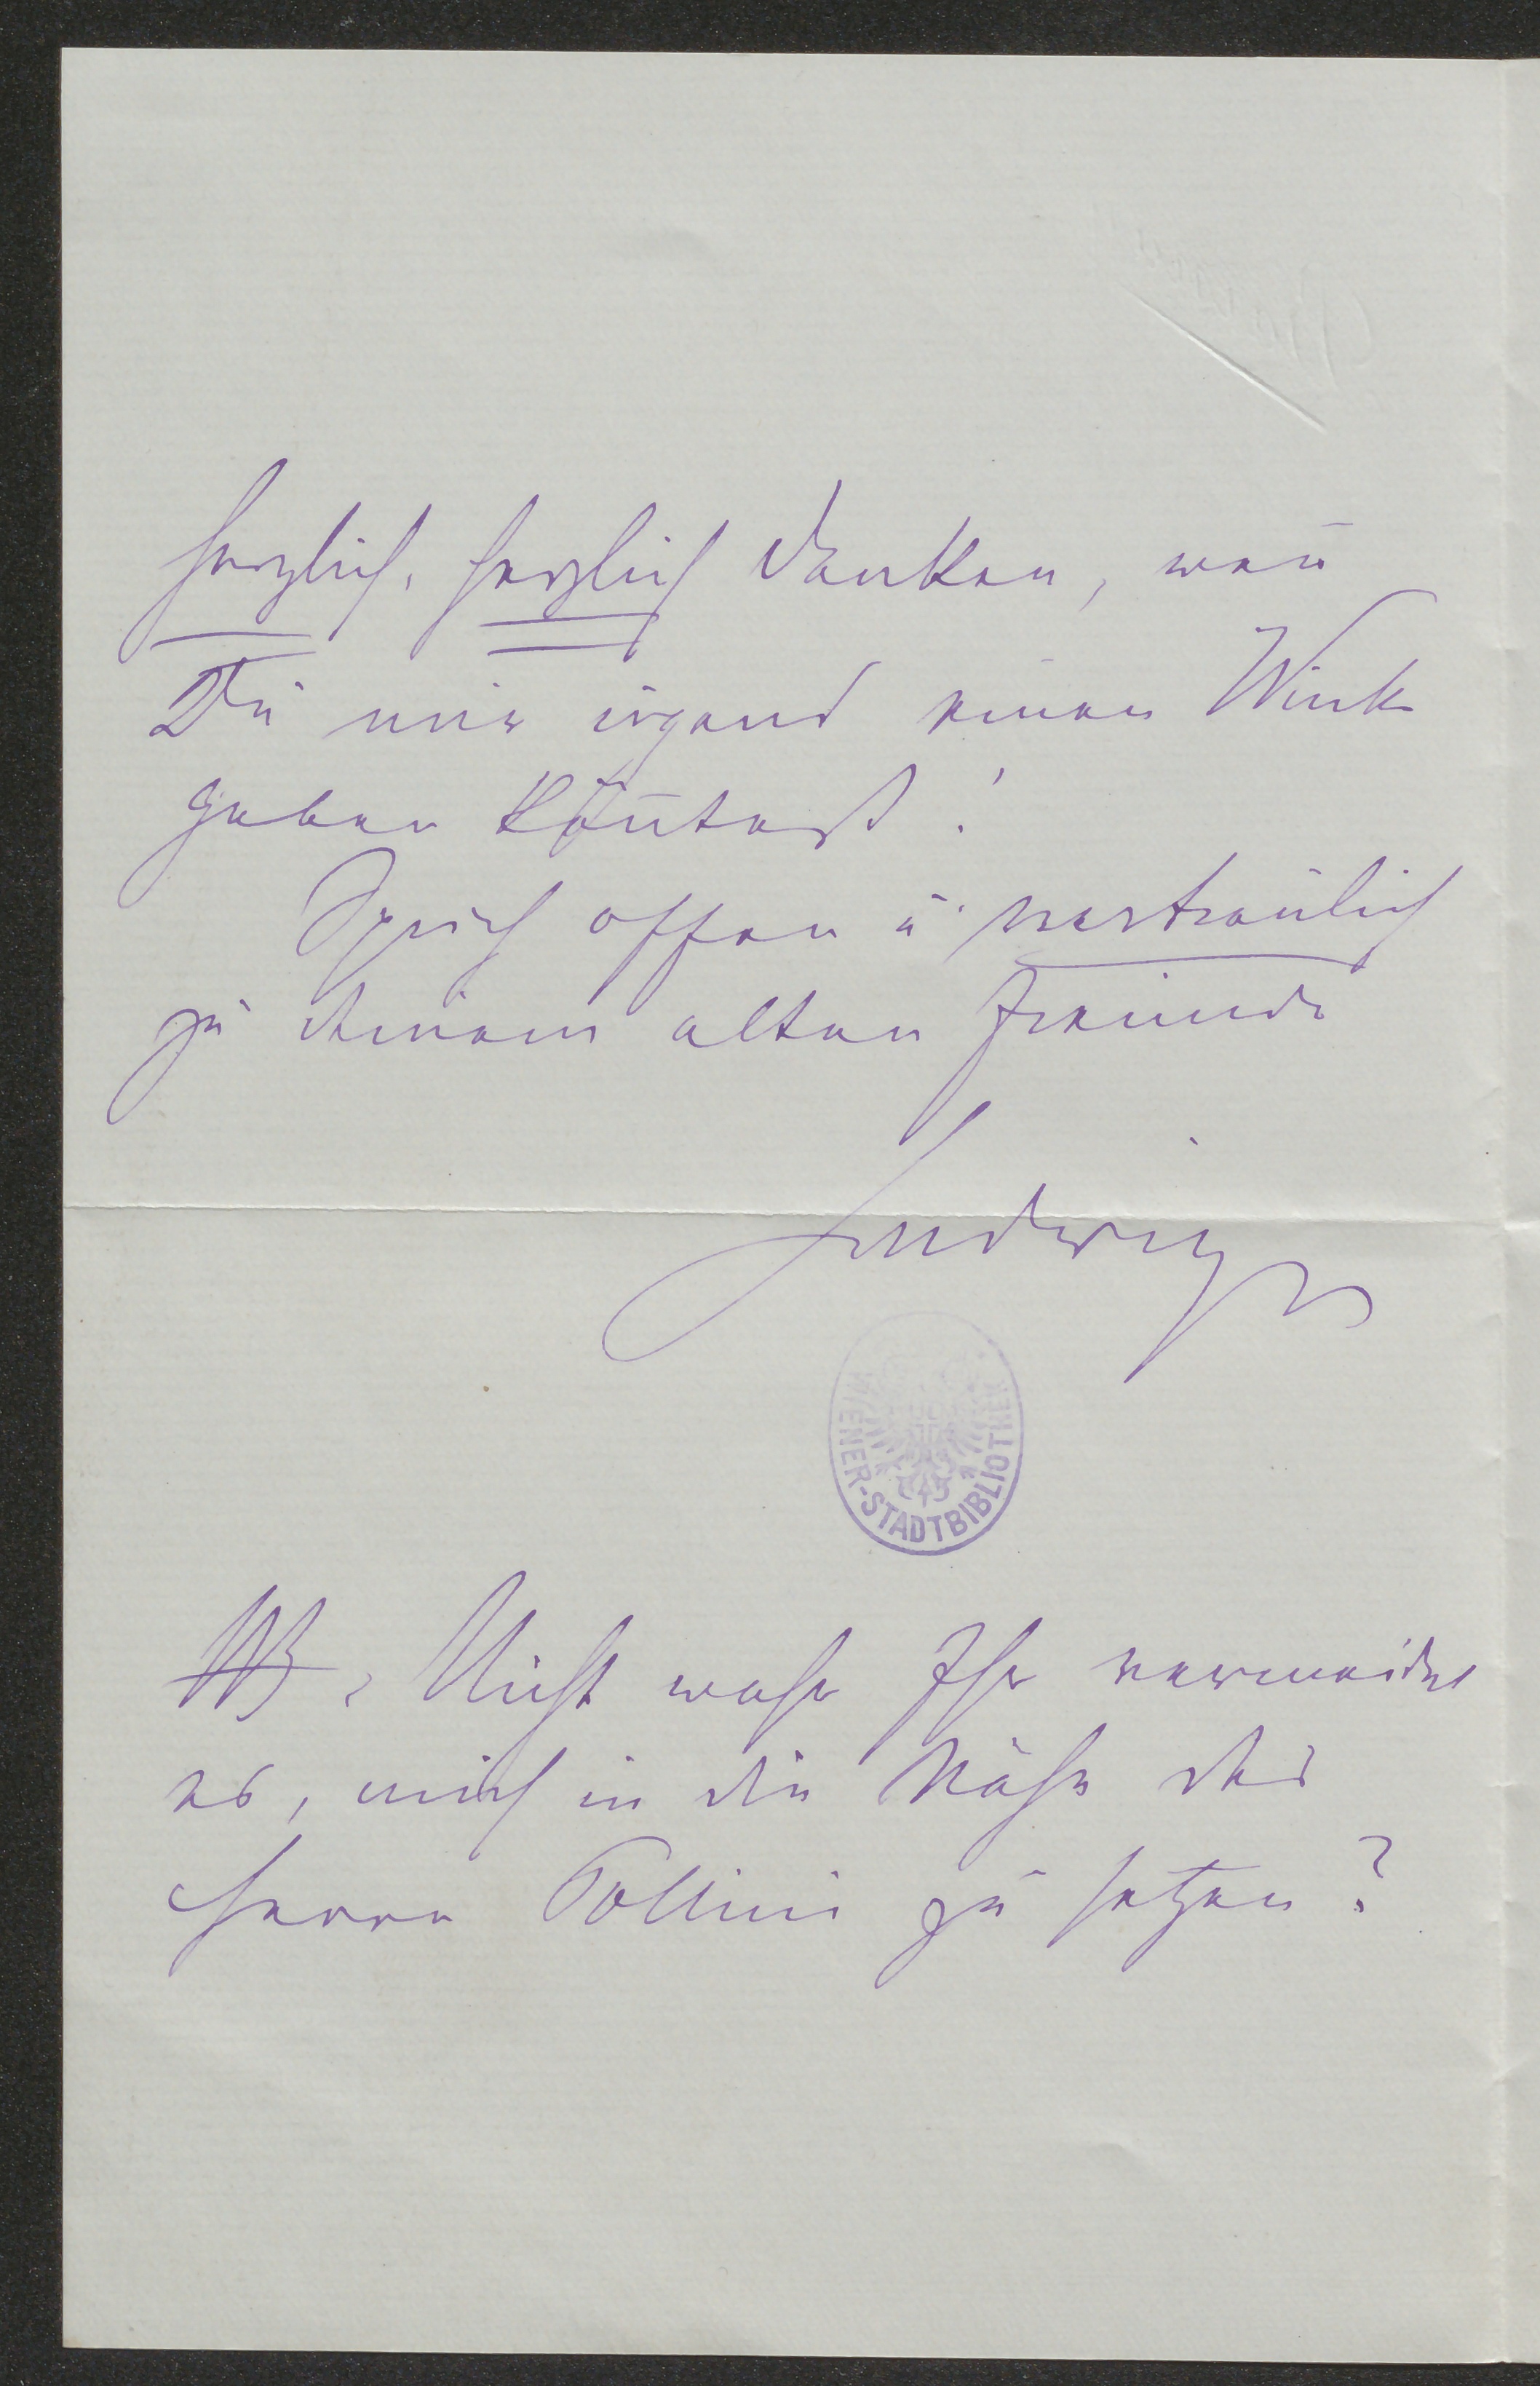 herzlich, herzlich danken, wen̄
Du mir irgend einen Wink
geben kön̄test!
Sprich offen u. vertraulich
zu deinem alten Freunde
Ludwig
WIENER-STADTBIBLIOTHEK
NB. Nicht wahr Ihr vermeidet
es, mich in die Nähe des
Herrn Pollini zu setzen?